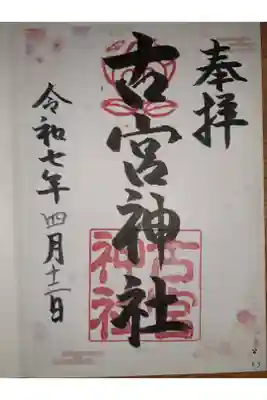 奉拝
古宮神社
古宮
神社
令和七年四月十二日